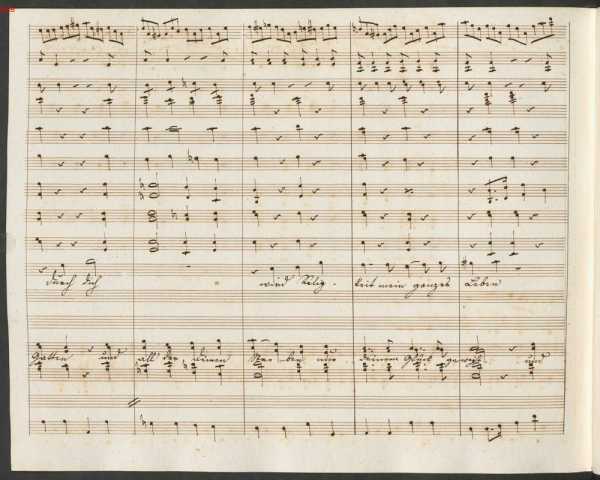 durch dich wird Selig- keit mein ganzes Leben
Gatten und all der deinen Streben nur deinem Glück geweiht und